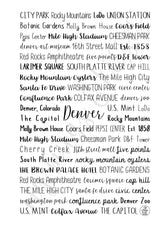 CITY PARK Rocky Mountains LoDo UNION STATION
Botanic Gardens Molly Brown House Coors Field
Pepsi Center Mile High Stadium CHEESMAN PARK
denver art museum 16th Street Mall Est. 1858
Red Rocks Amphitheatre zoo presents
LARIMER SQUARE SOUTH PLATTE RIVER CAP HILL
Rocky Mountain Oysters The Mile High City
Santa Fe Drive WASHINGTON PARK civic center
Confluence Park COLFAX AVENUE zoo
Denver, Colorado Denver U.S. MINT LoDo
The Capitol Rocky Mountains
Molly Brown House Coors Field PEPSI CENTER Est. 1858
Mile High Stadium Cheesman Park D&F Tower
Cherry Creek 16th street mall five points
South Platte River rocky mountain oysters
THE BROWN PALACE HOTEL BOTANIC GARDENS
Red Rocks Amphitheatre coors field cap hill
THE MILE HIGH CITY santa fe drive civic center
washington park confluence park Denver Zoo
U.S. MINT Colfax Avenue THE CAPITOL